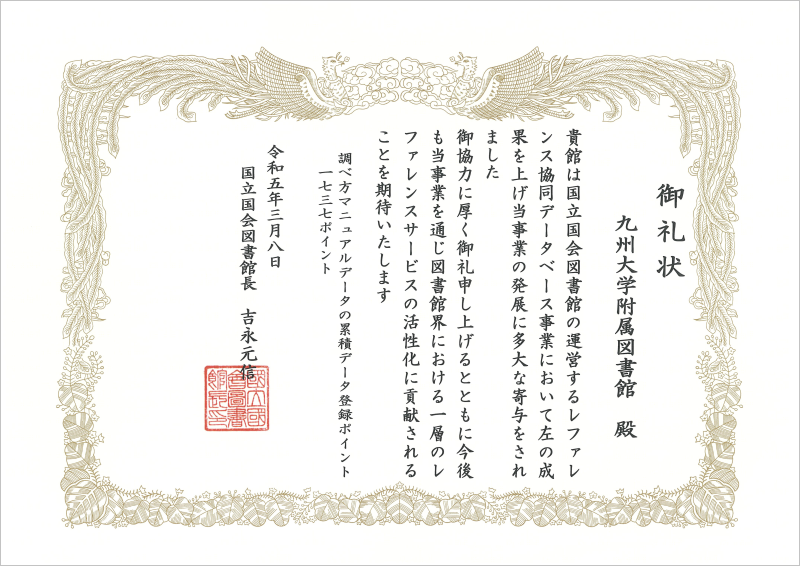 御礼状
九州大学附属図書館　殿
貴館は国立国会図書館の運営するレファレ
ンス協同データベース事業において左の成
果を上げ当事業の発展に多大な寄与をされ
ました
御協力に厚く御礼申し上げるとともに今後
も当事業を通じ図書館界における一層のレ
ファレンスサービスの活性化に貢献される
ことを期待いたします
調べ方マニュアルデータの累積データ登録ポイント
一七三七ポイント
令和五年三月八日
国立国会図書館長　吉永元信
國立國
會圖書
館長印